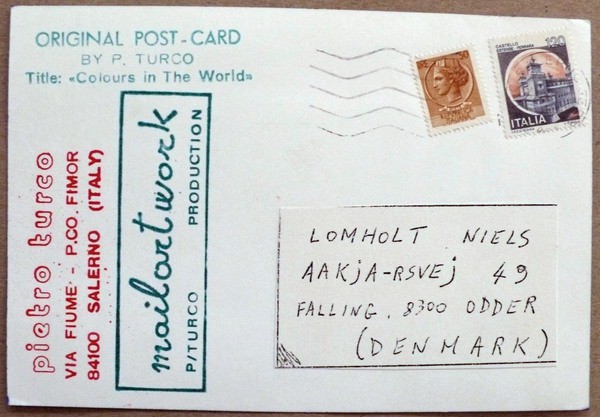 ORIGINAL POST-CARD
BY P. TURCO
Title: «Colours in The World»
pietro turco
VIA FIUME - P.CO. FIMOR
84100 SALERNO (ITALY)
mailartwork
P/TURCO PRODUCTION
CASTELLO
120
ITALIA
LOMHOLT NIELS
AAKjA-RSVEj 49
FALLING. 8300 ODDER
(DENMARK)